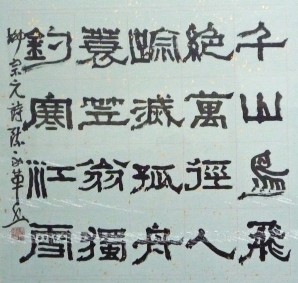 千山鳥飛
絶萬徑人
踪滅孤舟
蓑笠翁獨
釣寒江雪
柳宗元詩